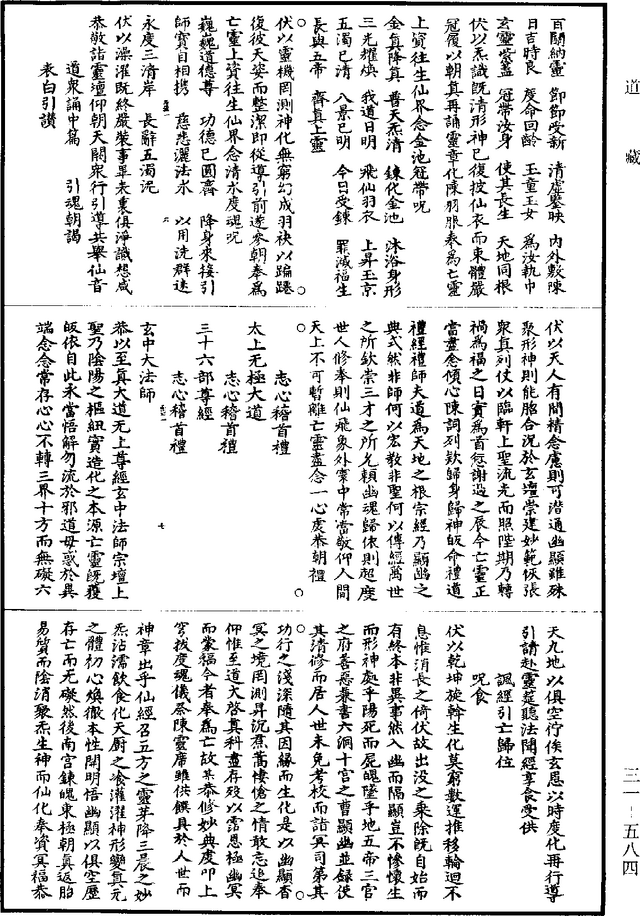 道藏
百關納靈　節節受新　清虛鑒映　內外敷陳
日吉時良　度命回齡　玉童玉女　為汝執巾
玄靈紫蓋　冠帶汝身　使其長生　天地同根
伏以炁識既清形神已復披仙衣而束體嚴
冠履以朝真再誦靈章化陳羽服奉為亡靈
上資往生仙界念金池冠帶呪
金真降真　普天炁清　鍊化金池　沐浴身形
三光耀煥　我道日明　飛仙羽衣　上昇玉京
五濁已清　八景已明　今日受鍊　罪滅福生
長與五帝　齊真上靈
伏以靈機罔測神化無窮幻成羽袂以蹁躚
復彼天姿而整潔即從導引前遂參朝奉為
亡靈上資往生仙界念清水度魂呪
巍巍道德尊　功德已圓齊　降身來接引
師寶自相携　慈悲灑法水　以用洗群迷
永度三清岸　長辭五濁泥
伏以澡濯既終嚴裝事畢表裏俱淨識想咸
恭敬詣靈壇仰朝天閽衆行引導共舉仙音
道衆誦中篇　引魂朝謁
表白引讚
伏以天人有間精念慮則可潛通幽顯雖殊
聚形神則能臨合況於玄壇崇建妙範恢張
衆真列仗以臨軒上聖流光而照陛期乃轉
禍為福之日實為首愆謝過之辰今亡靈正
當盡念傾心陳詞列欵歸身歸神皈命禮道
禮經禮師夫道為天地之根宗經乃顯幽之
典式然非師何以宏教非聖何以傳經萬世
之所欽崇三才之所允賴幽魂歸依則超度
世人修奉則仙飛象外寰中常當敬仰人間
天上不可暫離亡靈盡念一心虔恭朝禮
志心稽首禮
太上无極大道
志心稽首禮
三十六部尊經
志心稽首禮
玄中大法師
恭以至真大道无上尊經玄中法師宗壇上
聖乃陰陽之樞紐實造化之本源亡靈既獲
皈依自此永當悟解勿流於邪道毋惑於異
端念念常存心心不轉三界十方而無礙六
天九地以俱空佇俟玄恩以時度化再行導
引請赴靈筵聽法聞經享食受供
諷經引亡歸位
呪食
伏以乾坤旋斡生化莫窮數運推移輪迴不
息惟消長之倚伏故出没之乘除既自始而
有終本非異事然入幽而隔顯豈不慘懷生
而形神處乎陽死而屍魄墜乎地五帝三官
之府善惡兼書六洞十宮之曹顯幽並録使
其清修而居人世未免考校而詣冥司第其
功行之淺深隨其因緣而生化是以幽顯杳
冥之境罔測昇沉焄蒿悽愴之情敢忘追奉
仰惟至道大啓真科盡存歿以霑恩極幽冥
而蒙福今者奉為亡故某恭修妙典虔叩上
穹拔度魂儀祭陳靈席雖供饌具於人世而
神章出乎仙經召五方之靈芽降三晨之妙
炁沾濡飲食化天廚之飡灌濯神形變真元
之體初心煥徹本性開明悟幽顯以俱空歷
存亡而无礙然後南宮鍊魄東極朝真返胎
易質而陰消聚炁生神而仙化奉資冥福恭
三一－五八四